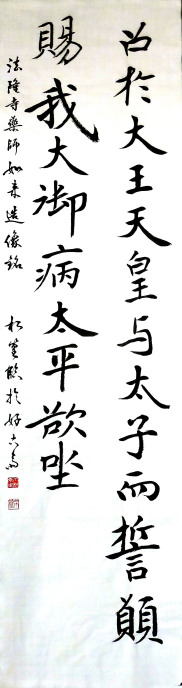 召於大王天皇与太子而誓願
賜我大御病太平欲坐
法隆寺藥師如来造像銘
於好古